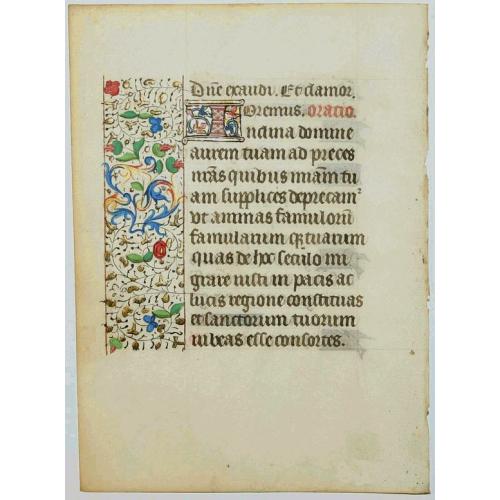 Dñe exaudi. Et clamor.
Oremus. Oratio.
Inclina domine
aurem tuam ad preces
nr̃as quibus miam̃ tu
am supplices deprecam²
vt animas famuloru̅
famularum q̃ tuarum
quas de hoc seculo mi
grare iusti in pacis ac
lucis regione constituas
et sanctorum tuorum
iubeas esse consortes.